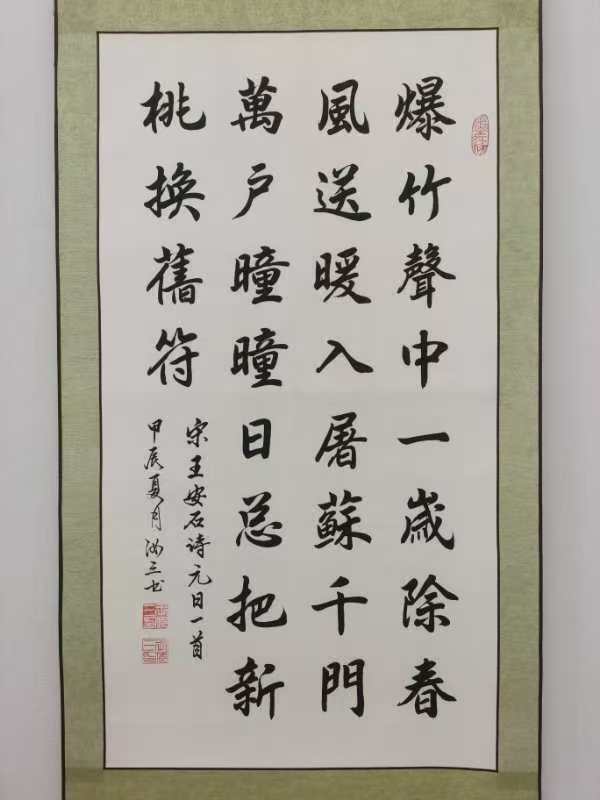 爆竹聲中一歲除春
風送暖入屠蘇千門
萬戶曈曈日总把新
桃換舊符
宋王安石诗元日一首
甲辰夏月汝三书